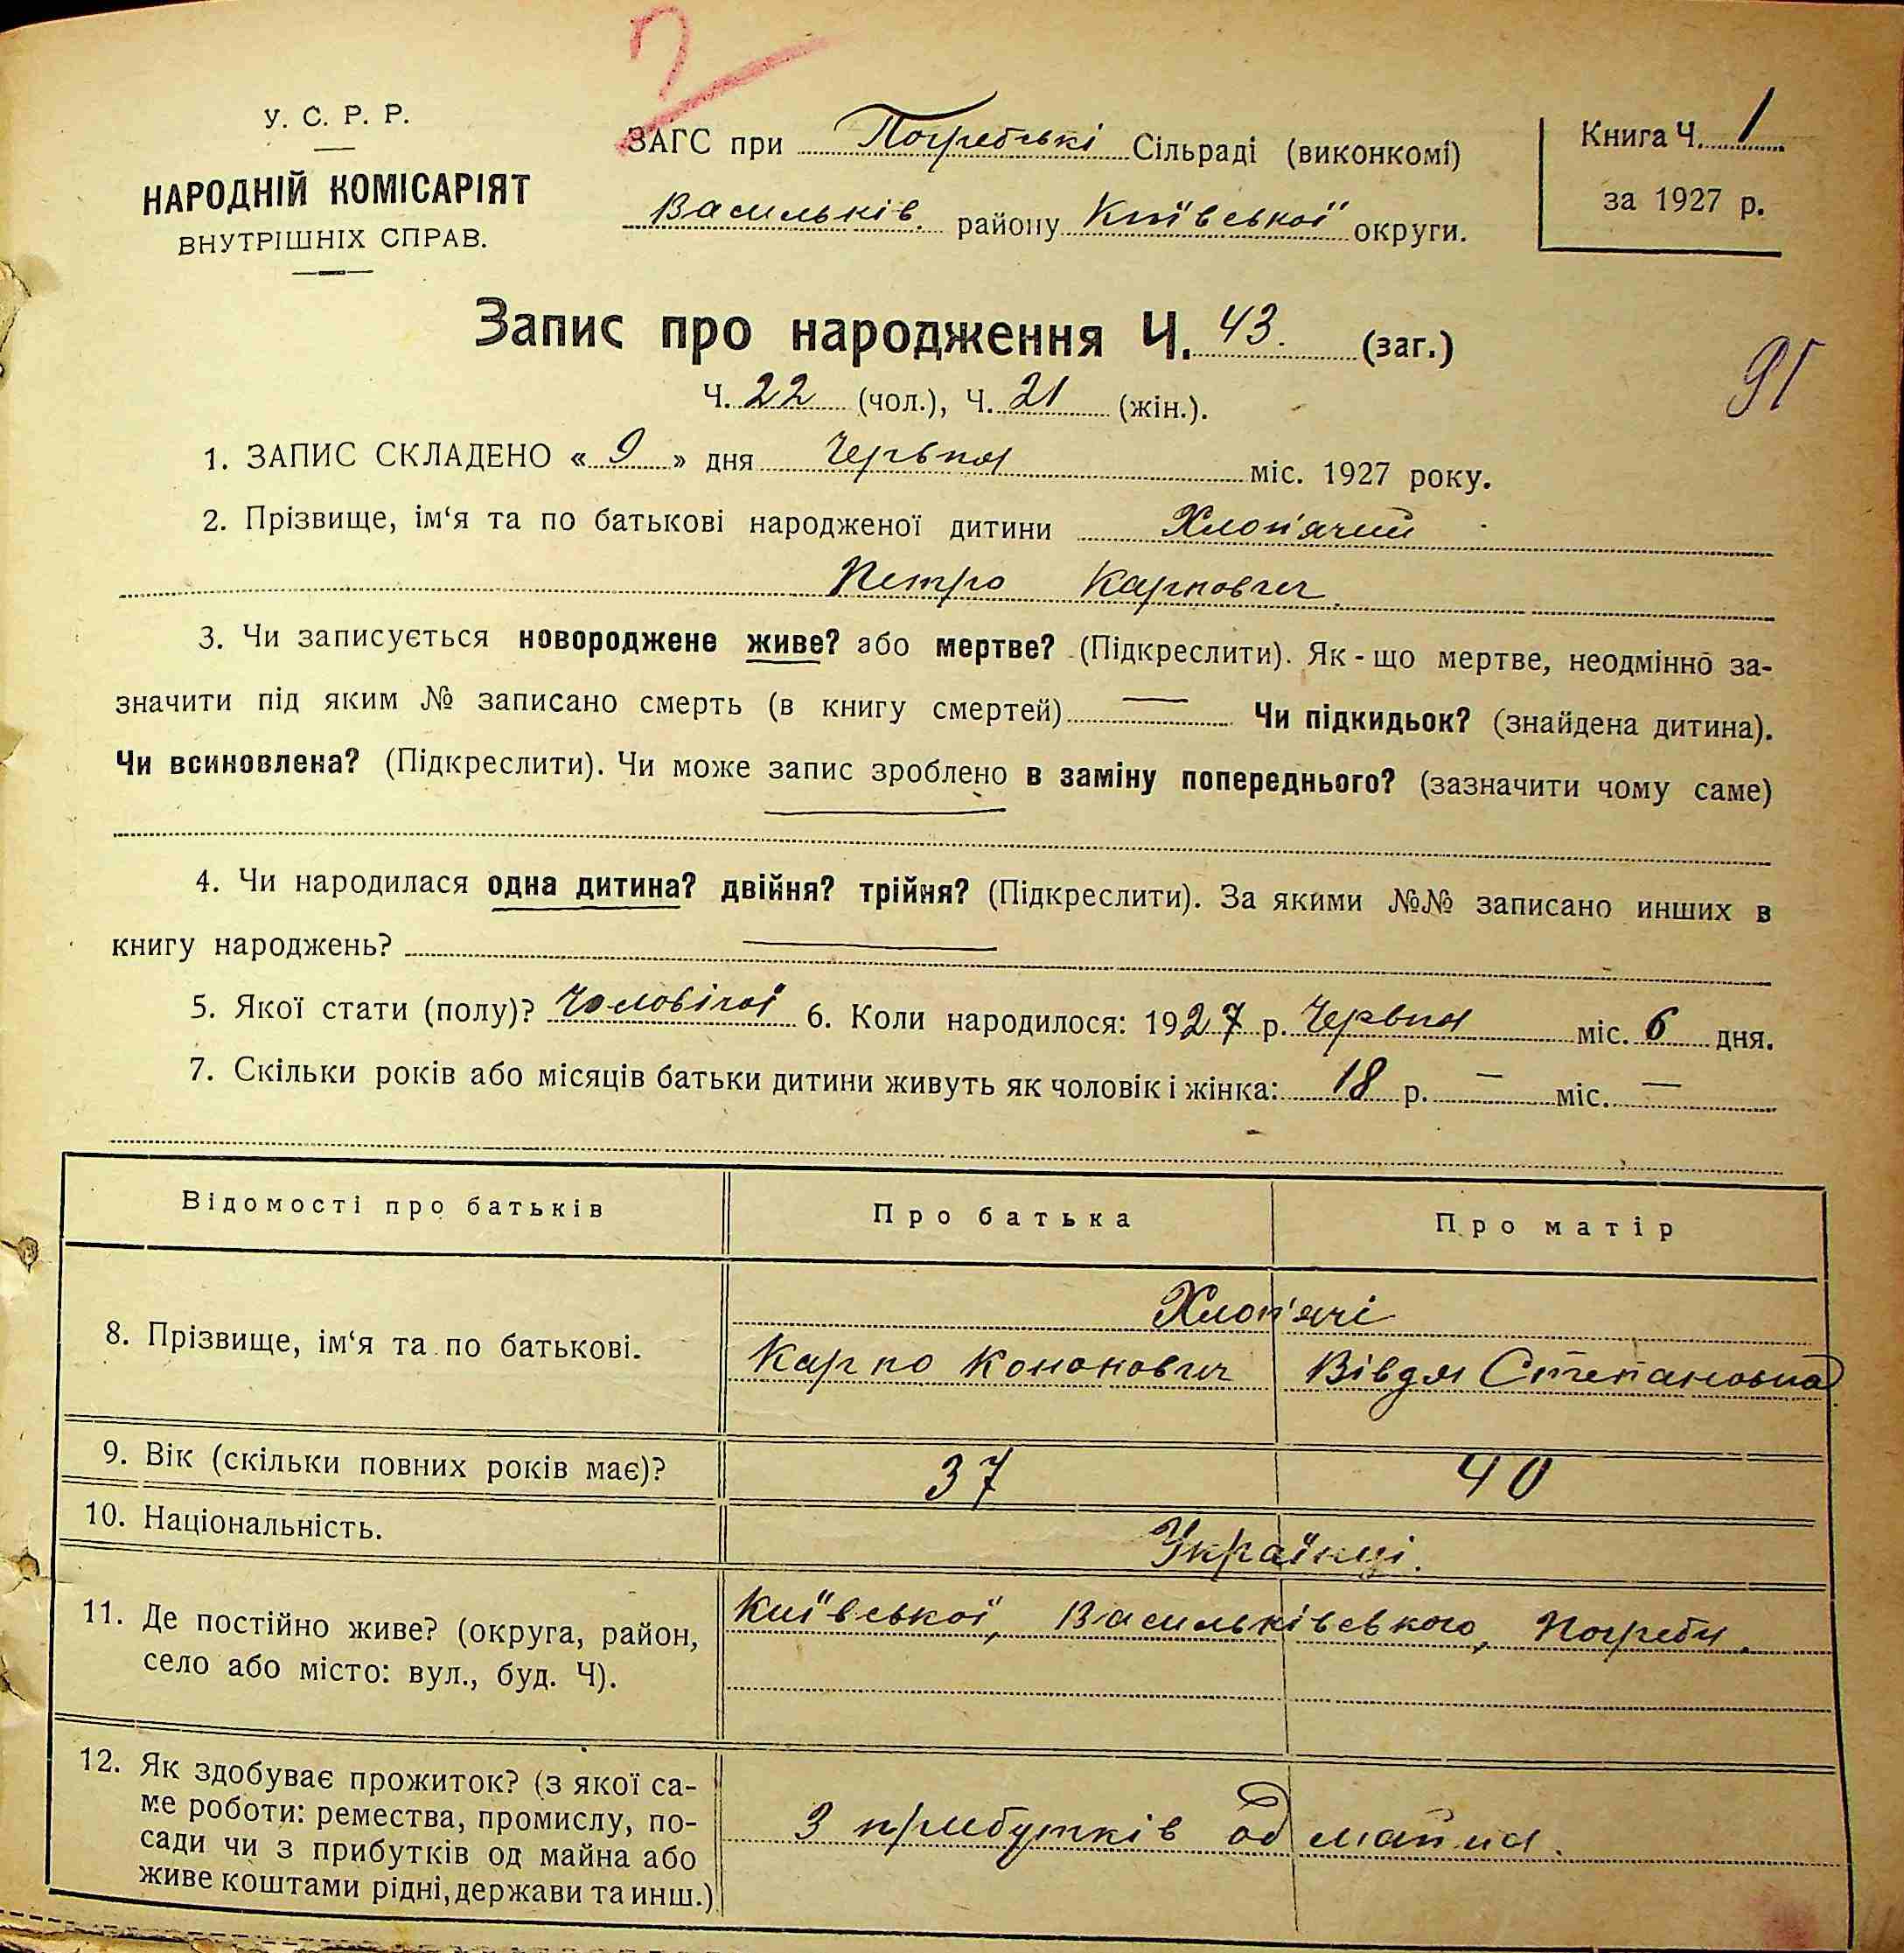 У. С. Р. Р.
НАРОДНІЙ КОМІСАРІЯТ
ВНУТРІШНІХ СПРАВ.
ЗАГС при Погребські Сільраді (виконкомі)
Васильків. району Київської округи.
Книга Ч. 1
за 1927 р.
Запис про народження Ч. 43. (заг.)
91
Ч. 22 (чол.), Ч. 21 (жін.).
1. ЗАПИС СКЛАДЕНО « 9 » дня Червня міс. 1927 року.
2. Прізвище, ім‘я та по батькові народженої дитини Хлоп'ячий
Петро Карпович.
3. Чи записується новороджене живе? або мертве? (Підкреслити). Як-що мертве, неодмінно за-
значити під яким № записано смерть (в книгу смертей) — Чи підкидьок? (знайдена дитина).
Чи всиновлена? (Підкреслити). Чи може запис зроблено в заміну попереднього? (зазначити чому саме)
—
4. Чи народилася одна дитина? двійня? трійня? (Підкреслити). За якими №№ записано инших в
книгу народжень? —
5. Якої стати (полу)? Чоловічої 6. Коли народилося: 1927 р. Червня міс. 6 дня.
7. Скільки років або місяців батьки дитини живуть як чоловік і жінка: 18 р. — міс. —
Відомості про батьків Про батька Про матір
Хлоп'ячі
8. Прізвище, ім‘я та по батькові. Карпо Кононович Вівдя Степановна
9. Вік (скільки повних років має)? 37 40
10. Національність. Українці.
11. Де постійно живе? (округа, район, Київської, Васильківського, Погреби.
село або місто: вул., буд. Ч).
12. Як здобуває прожиток? (з якої са-
ме роботи: ремества, промислу, по-
сади чи з прибутків од майна або З прибутків од майна.
живе коштами рідні, держави та инш.)